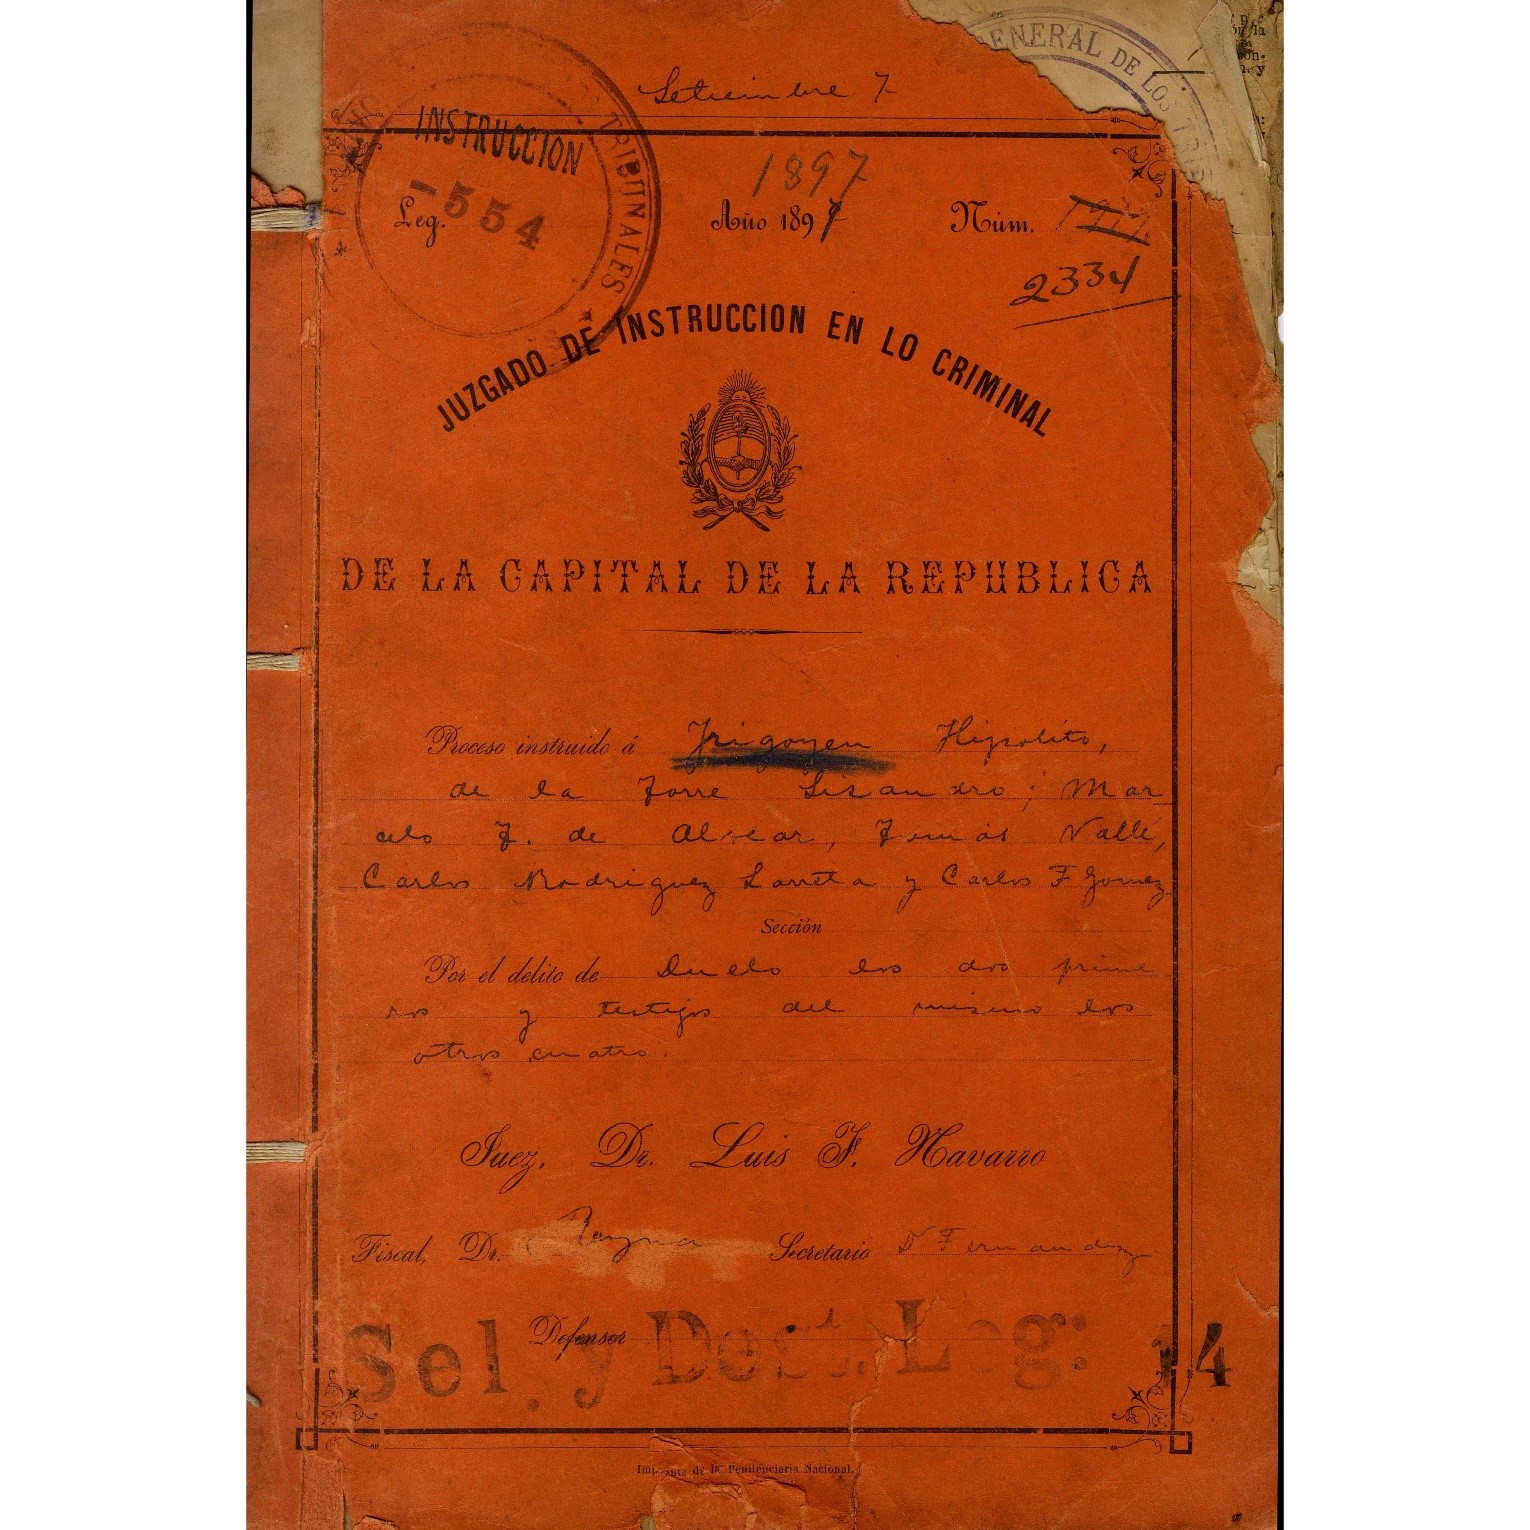 Setiembre 7
GENERAL DE LOS TRI
INSTRUCCION
TRIBUNALES
- 554
1897
Leg.
Año 1897
Núm.
2334
JUZGADO DE INSTRUCCION EN LO CRIMINAL
DE LA CAPITAL DE LA REPUBLICA
Proceso instruido á Yrigoyen Hipolito,
de la Torre Lisandro; Mar
celo T. de Alvear, Tomás Vallé,
Carlos Rodriguez Larreta y Carlos F Gomez
Sección
Por el delito de Duelo los dos prime
ros y testigos del mismo los
otros cuatro.
Juez, Dr. Luis F. Navarro
Fiscal, Dr. Secretario Dr Fernandez
Defensor
Sel. y Dest. Leg: 14
Imprenta de la Penitenciaria Nacional.